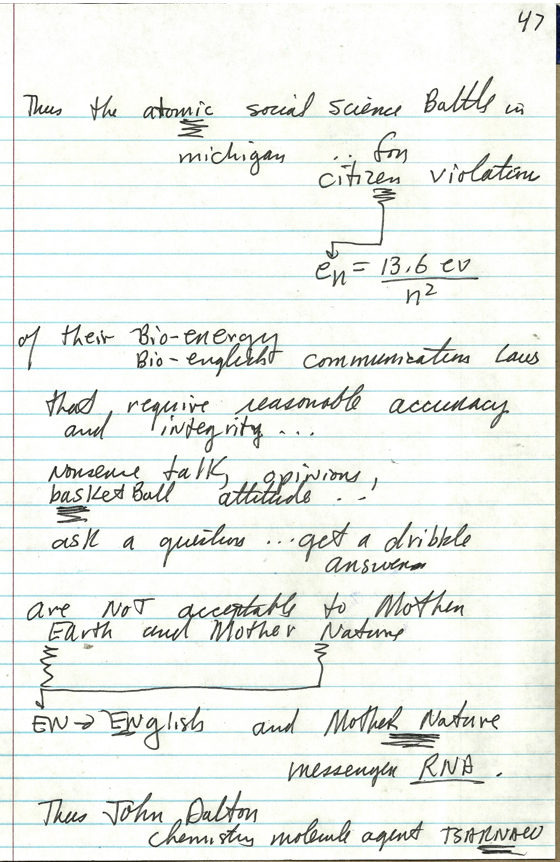 47
Thus the atomic social science Battle in
michigan ... for
citizen violation
en = 13.6 ev
n2
of their Bio-energy
Bio-english communication laws
that require reasonable accuracy
and integrity ...
nonsense talk, opinions,
basketBall attitude ...
ask a question ... get a dribble
answer
are NOT acceptable to Mother
Earth and Mother Nature
EN → ENglish and Mother Nature
messenger RNA.
Thus John Dalton
chemistry molecule agent TSARNAEV